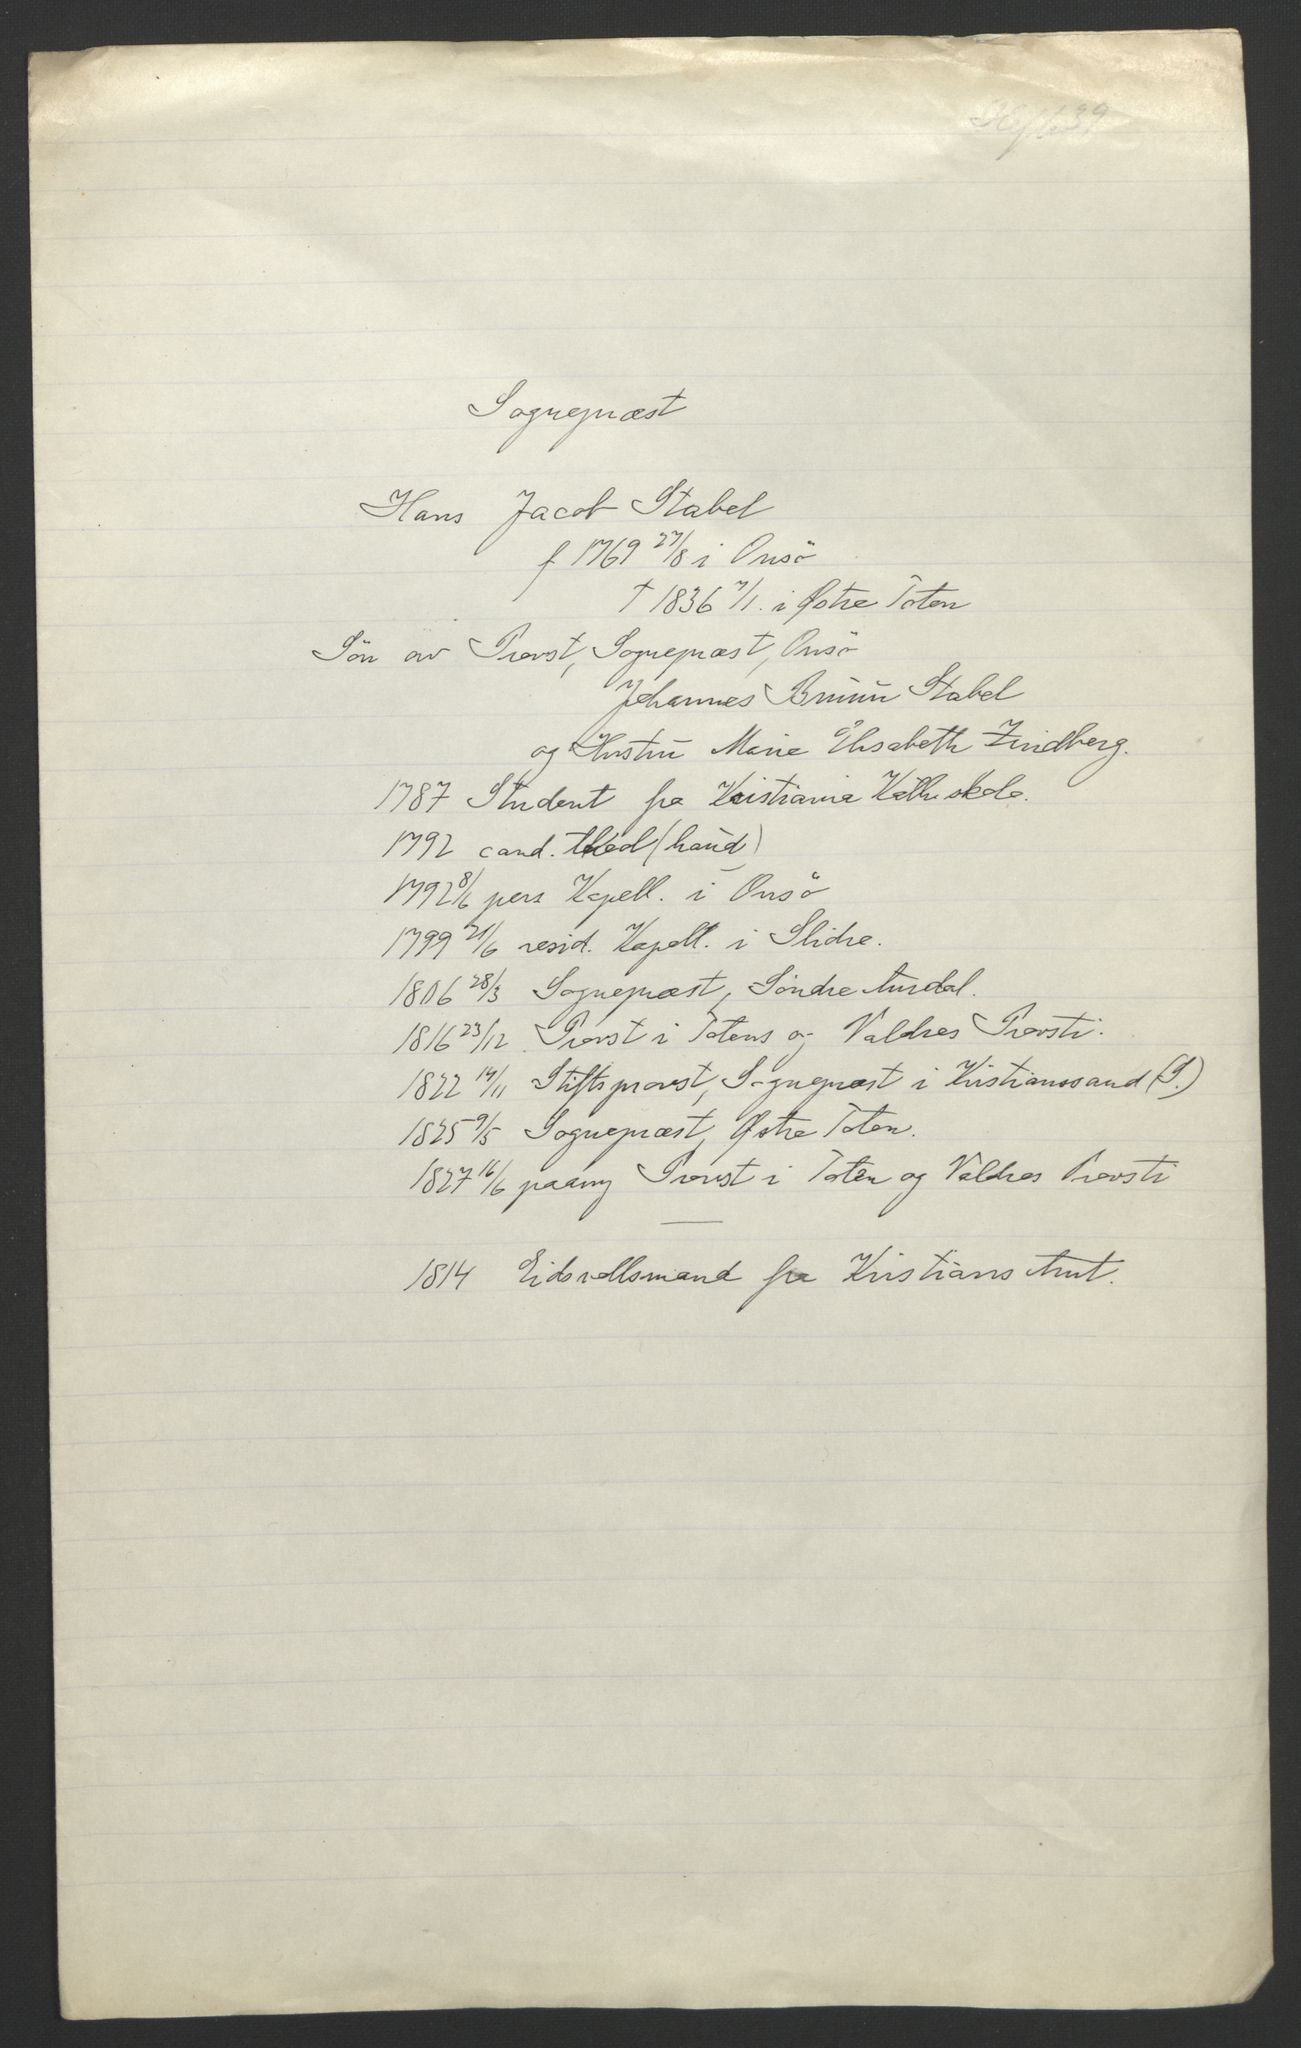 Sognepræst
Hans Jacob Stabel
f 1769 27/8 i Onsö
† 1836 7/1. i Østre Toten
Sön av Provst, Sognepræst, Onsö
Johannes Bruun Stabel
og Hustru Marie Elisabeth Lindberg.
1787 Student fra Kristiania Kath. skole.
1792 cand. theol (haud)
1792 8/6 pers Kapell. i Onsö
1799 21/6 resid. Kapell. i Slidre.
1806 28/3 Sognepræst, Söndre Aurdal.
1816 23/12 Provst i Totens og Valdres Provsti.
1822 14/11 Stiftsprovst, Sognepræst i Kristianssand (S.)
1825 9/5 Sognepræst, Østre Toten.
1827 16/6 paany Provst i Toten og Valdres Provsti
1814 Eidsvollsmand fra Kristians Amt.